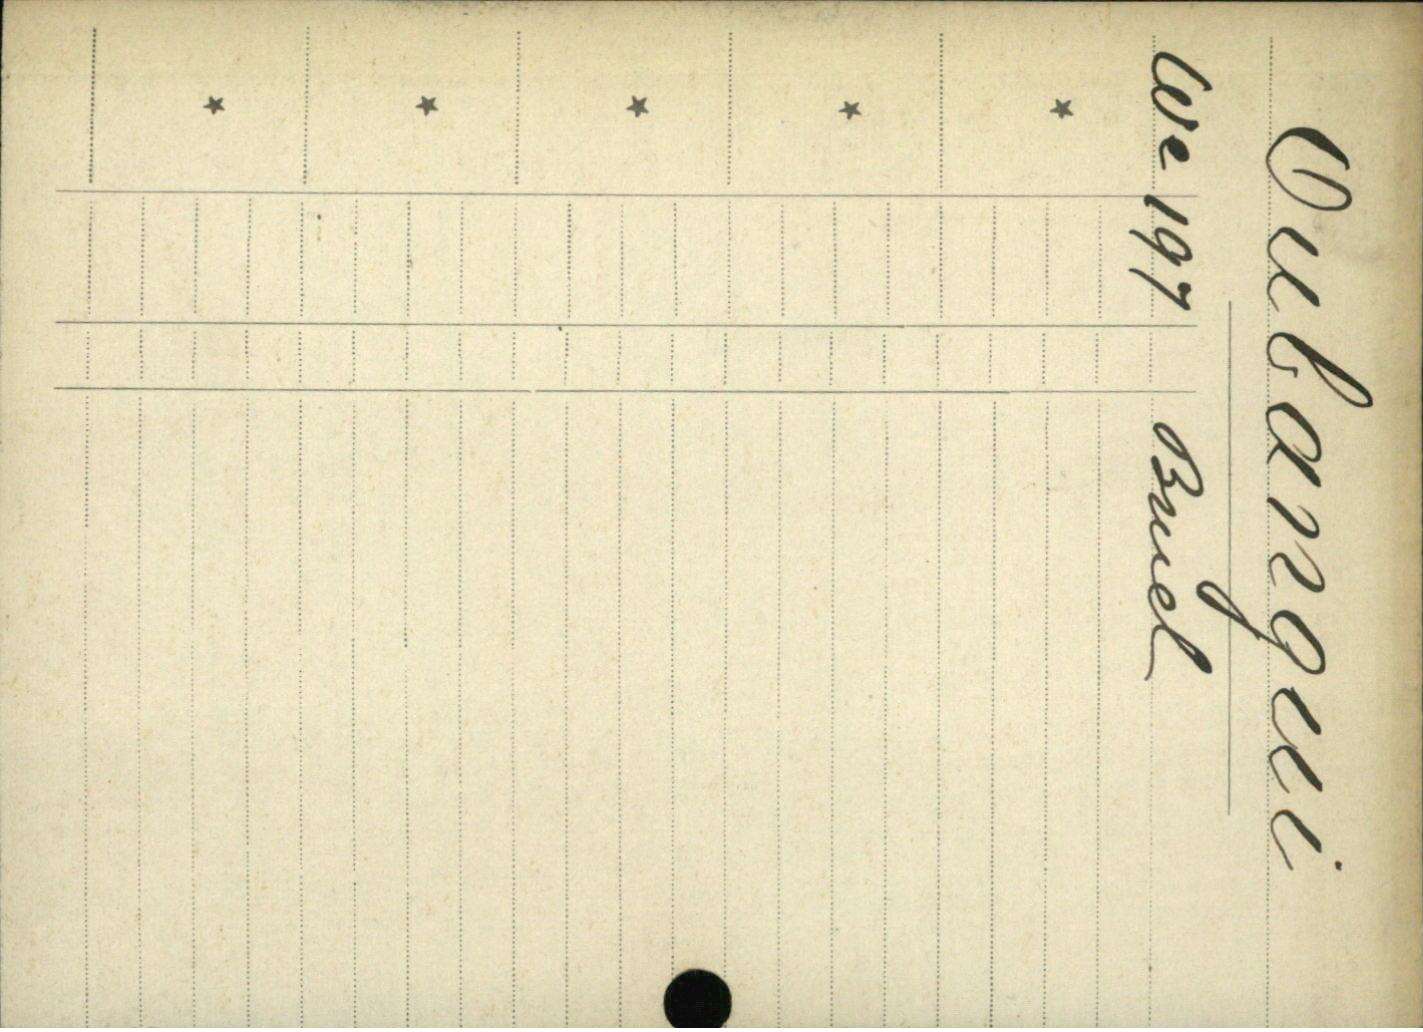 Oubangui
We 197 Bruel